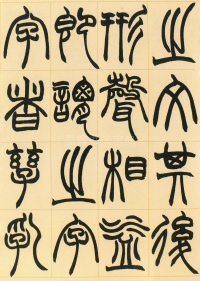 之文其後
形聲相益
即謂之字
字者孳乳